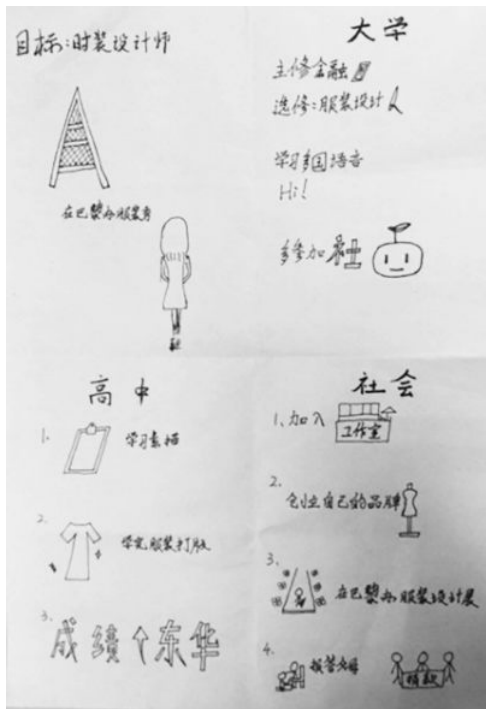 目标：时装设计师
在巴黎办服装秀
大学
主修金融
选修：服装设计
学习多国语言
Hi!
多参加社
高中
1. 学习素描
2. 学完服装打版
3. 成绩↑东华
社会
1、加入工作室
2. 创业自己的品牌
3. 在巴黎办服装设计展
4. 报答父母 捐款